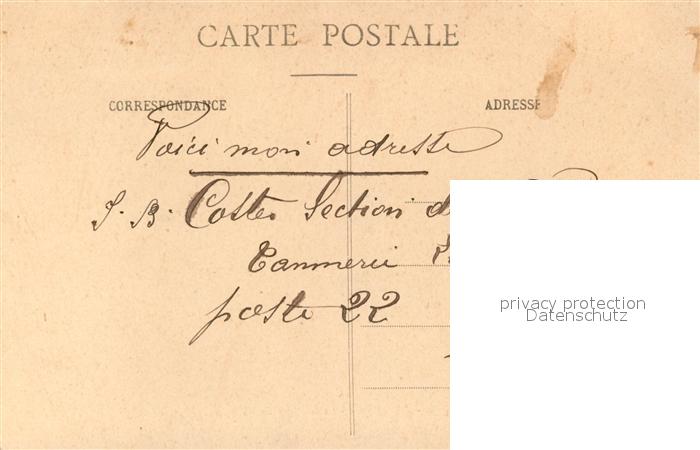 CARTE POSTALE
CORRESPONDANCE
ADRESSE
Voici mon adresse
J. B. Coste Section d
Tannerie
poste 22
privacy protection
Datenschutz